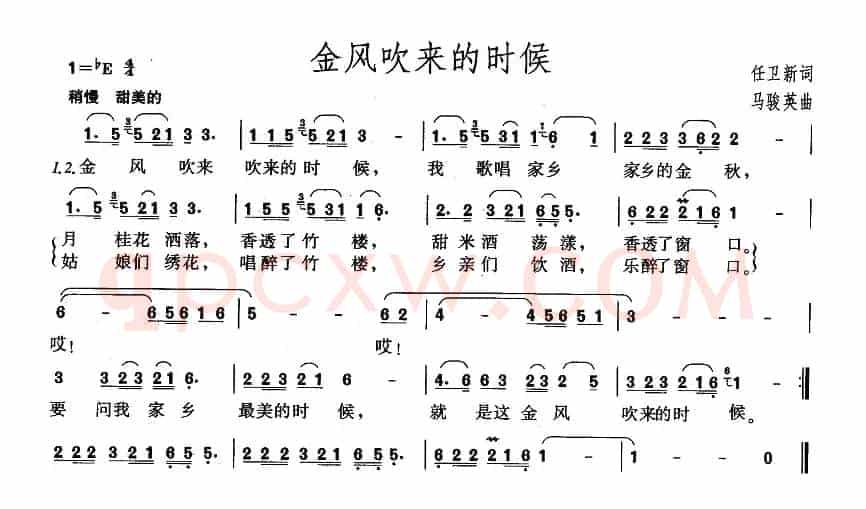 金风吹来的时候
1=♭E 4/4
任卫新词
稍慢 甜美的
马骏英曲
1. 5 3 5 21 3 3. | 1 1 5 5 321 3 - | 1. 5 3 5 1 1 6 1 | 2 2 2 3 3 6 2 2 - |
1.2.金 风 吹来 吹来的时 候， 我 歌唱 家乡 家乡的金 秋，
1. 5 3 5 21 3 3. | 1 5 5 5 5 31 1 6. | 2. 2 2 3 1 6 5 5. | 6 2 2 2 1 6 1 - |
月 桂花 洒落，香透了竹 楼， 甜 米酒 荡漾，香透了窗 口。
姑 娘们 绣花，唱醉了竹 楼， 乡 亲们 饮酒，乐醉了窗 口。
qpcxw.com
6 - 6 5 6 1 6 | 5 - - 6 2 | 4 - 4 5 6 5 1 | 3 - - - |
哎！ 哎！
3 3 2 3 2 1 6. | 2 2 3 2 2 1 6 - | 4. 6 6 3 2 3 2 5 | 3 2 2 3 2 1 6 1 - :||
要 问我 家乡 最美的时 候， 就 是这 金风 吹来的时 候。
2 2 2 3 2 1 6 5 5. | 2 2 2 3 2 1 6 5 5. | 6 2 2 2 2 1 6 1 - | 1 - - 0 ||